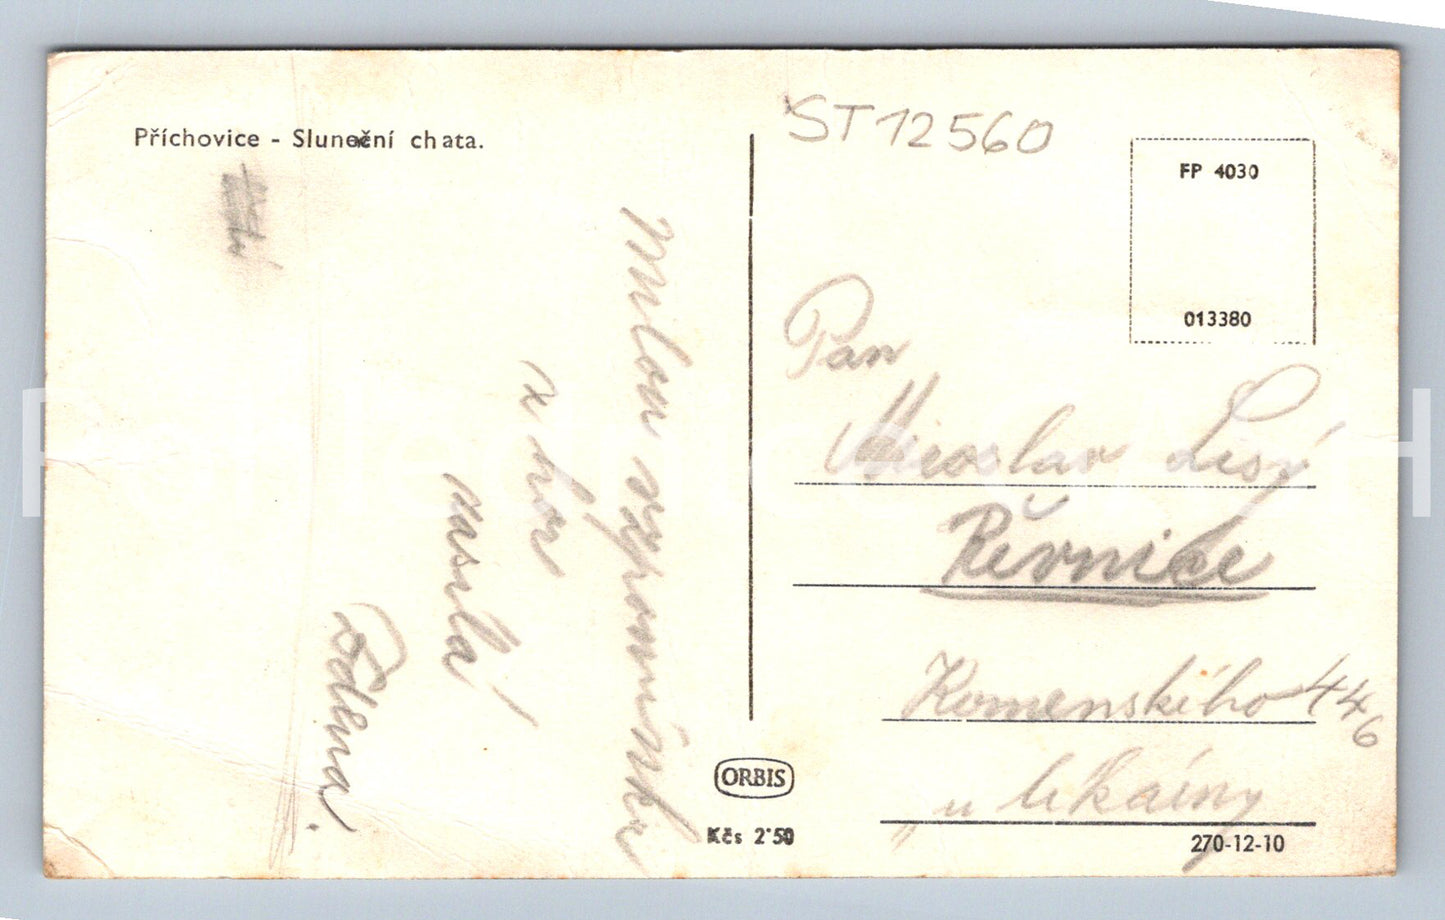 Příchovice - Sluneční chata.
ST 12560
FP 4030
013380
Milou vzpomínku
z hor
zasílá
Zdena.
Pan
Miroslav Lisý
Řevnice
Komenského 446
u lékárny
ORBIS
Kčs 2·50
270-12-10